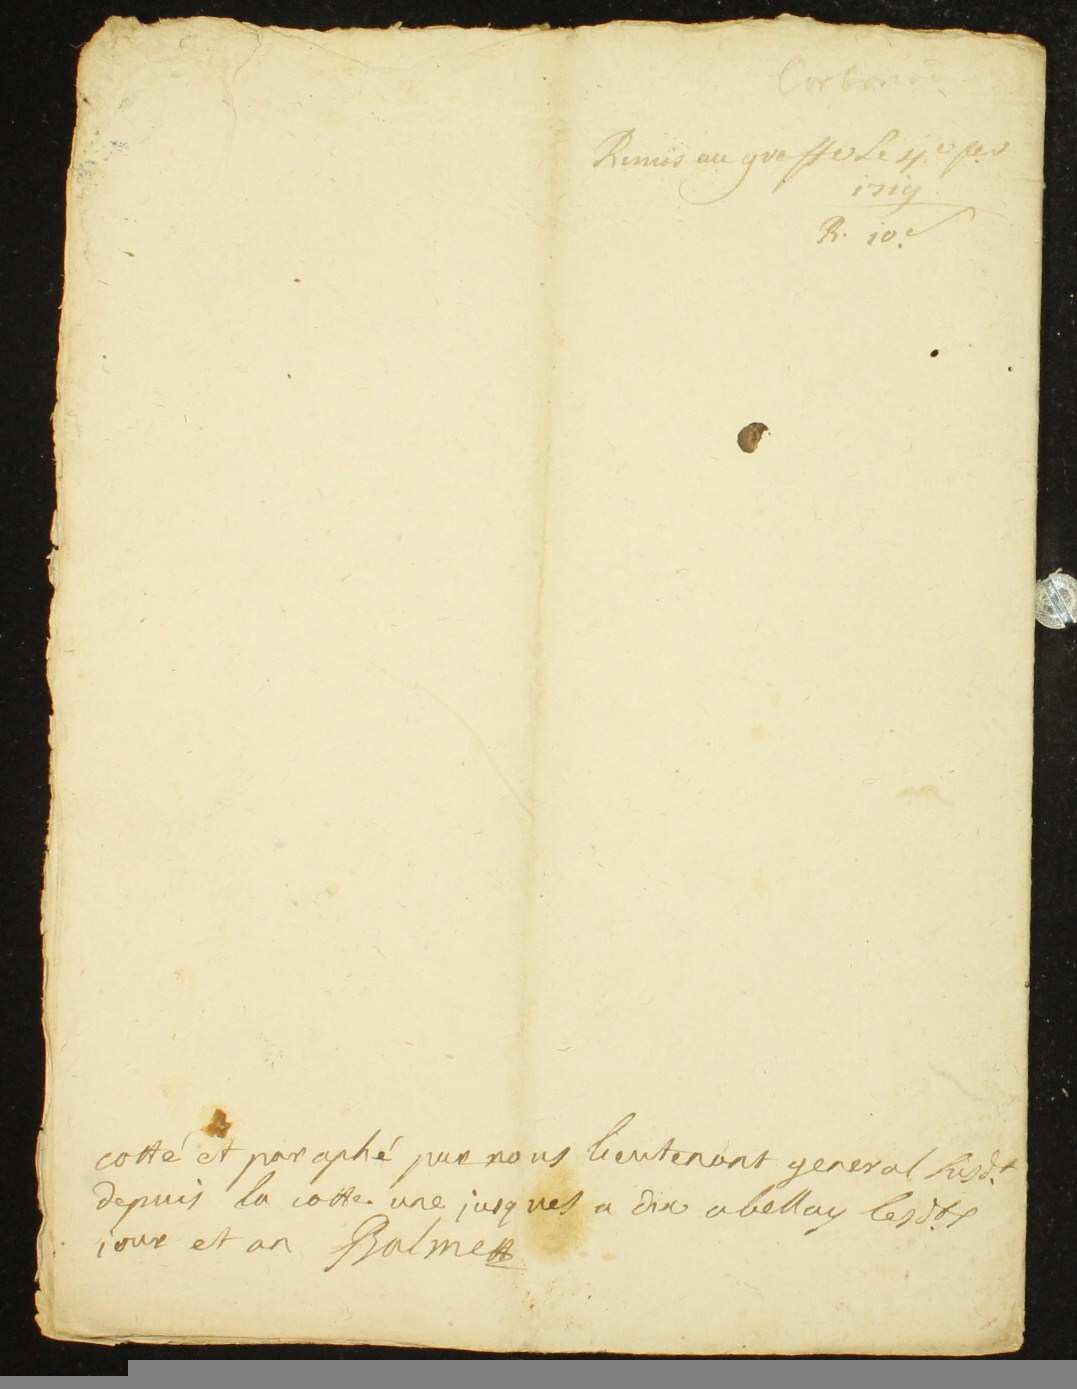 Corbonod
Remis au greffe Le 4.e fer
1719
R. 10.s
cotté et paraphé par nous lieutenant general susd.t
depuis la cotte une jusques a dix a bellay lesd.ts
jour et an Balme